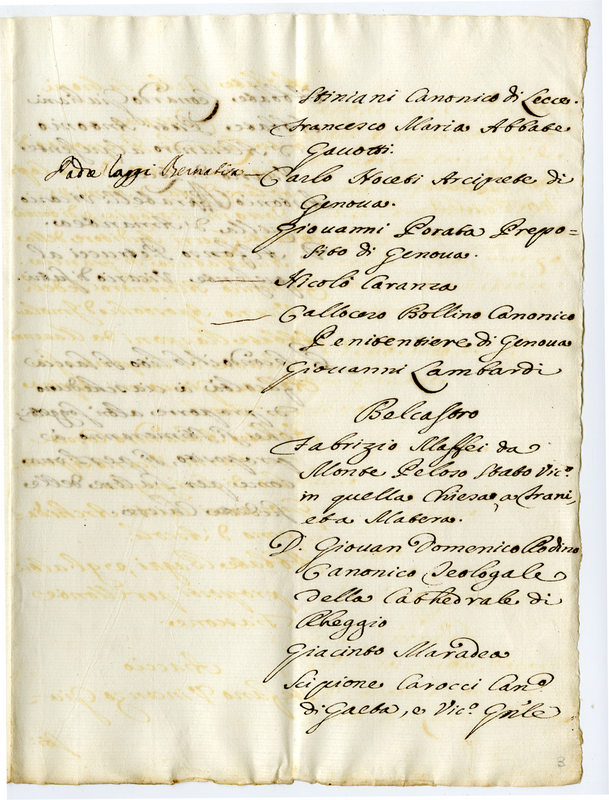 Stiniani Canonico di Lecce.
Francesco Maria Abbate
Gavotti.
Carlo Noceti Arciprete di
Genova.
Giovanni Porata Prepo=
sito di Genova.
Nicolò Caranza
Callocero Bollino Canonico
Penitentiere di Genova
Giovanni Lambardi
Belcastro
Fabrizio Maffei da
Monte Peloso stato Vic.º
in quella Chiesa, a Trani,
et a Matera.
D. Giovan Domenico Rodino
Canonico Teologale
della Cathedrale di
Rheggio
Giacinto Maradea
Scipione Carocci Can.º
di Gaeta, e Vic.º Gn̄le
3